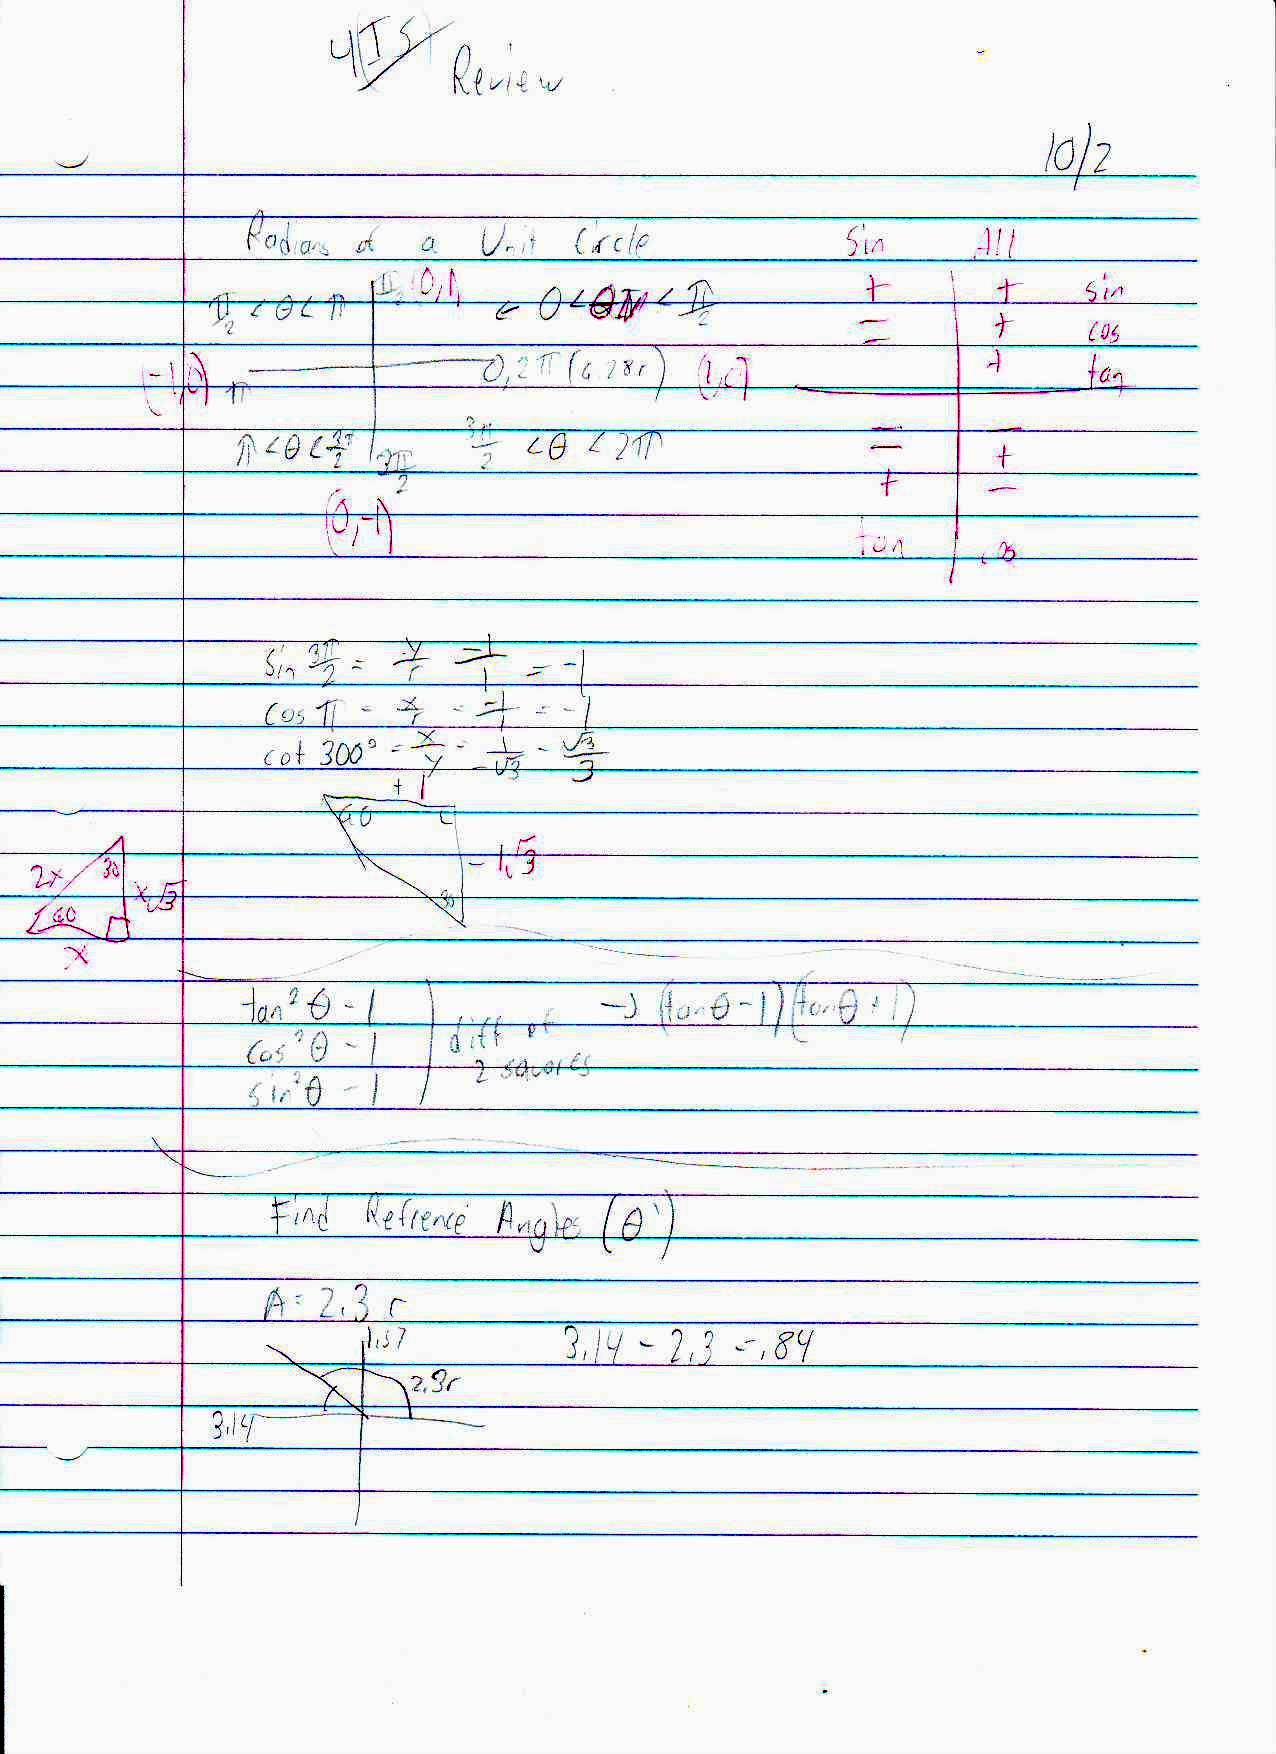 Review
10/2
Radians of a Unit Circle
Sin All
π/2 < θ < π
π/2 (0,1)
0 < θ < π/2
+ + sin
- + cos
+ tan
(-1,0) π
0, 2π (6.28r) (1,0)
π < θ < 3π/2
3π/2
3π/2 < θ < 2π
- -
- +
+ -
(0,-1)
tan cos
sin 3π/2 = y/r -1/1 = -1
cos π = x/r = -1/1 = -1
cot 300° = x/y = 1/-√3 - √3/3
+ 1
60
-1√3
30
2x 30 x√3
60
x
tan² θ - 1
cos² θ - 1
sin² θ - 1
diff of
2 squares
→ (tan θ - 1)(tan θ + 1)
Find Refrence Angles (θ')
A = 2.3 r
1.57
3.14 - 2.3 = .84
2.3r
3.14